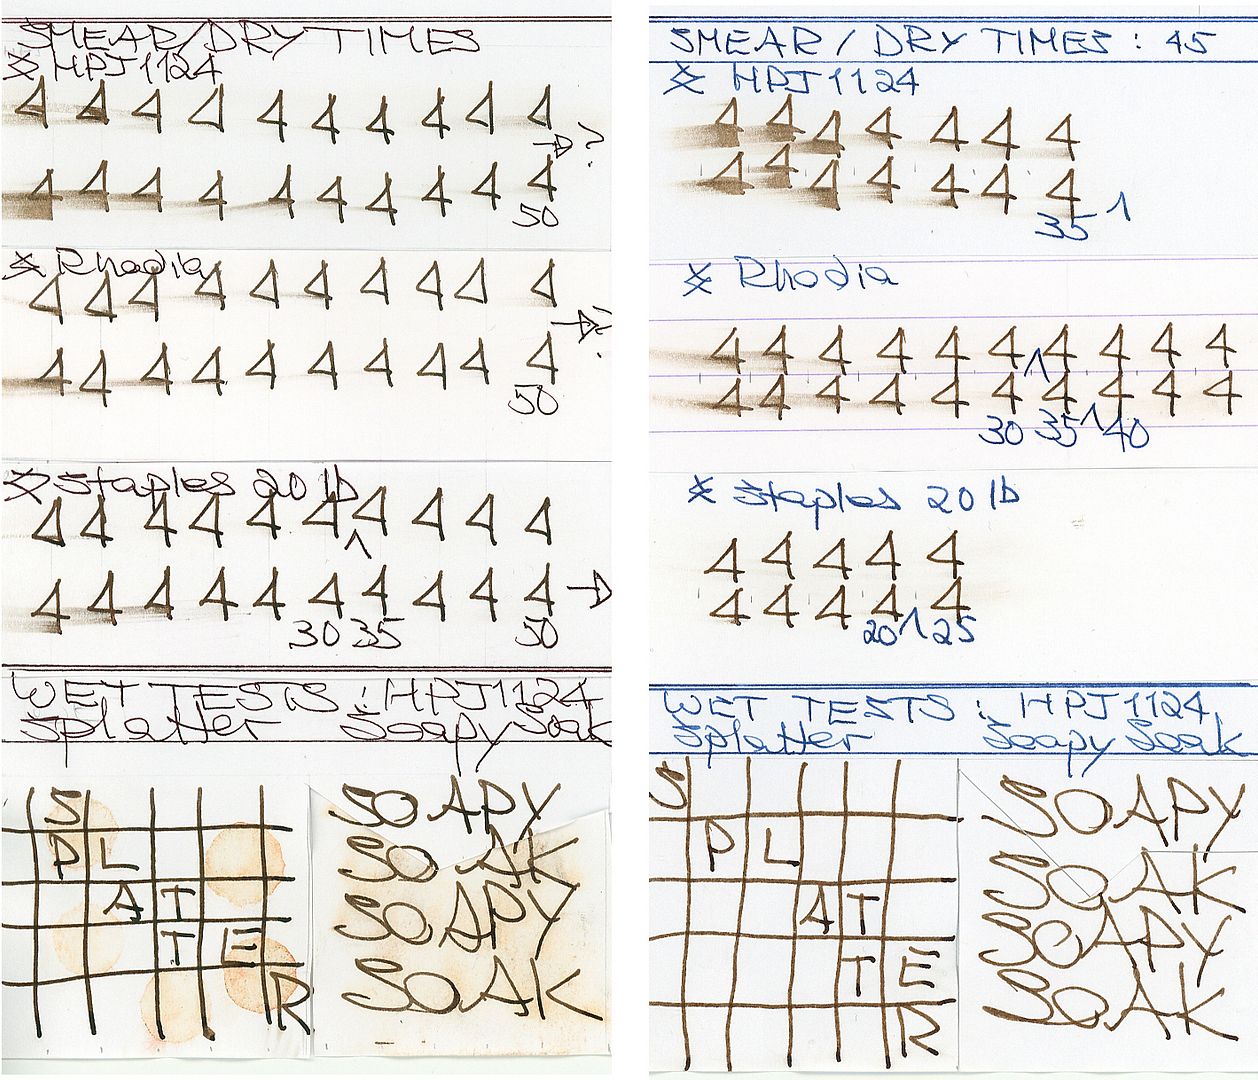 SMEAR/DRY TIMES
HPJ1124
4 4 4 4 4 4 4 4 4 4
?
4 4 4 4 4 4 4 4 4 4
50
Rhodia
4 4 4 4 4 4 4 4 4 4
?
4 4 4 4 4 4 4 4 4 4
50
Staples 20 lb
4 4 4 4 4 4 4 4 4 4
4 4 4 4 4 4 4 4 4 4
30 35 50
WET TESTS : HPJ1124
Splatter Soapy Soak
S
P L
A T
T E
R
SOAPY
SOAK
SOAPY
SOAK
SMEAR / DRY TIMES : 45
HPJ1124
4 4 4 4 4 4 4
4 4 4 4 4 4 4
35
Rhodia
4 4 4 4 4 4 4 4 4 4
4 4 4 4 4 4 4 4 4 4
30 35 40
Staples 20 lb
4 4 4 4 4
4 4 4 4 4
20 25
WET TESTS : HPJ1124
Splatter Soapy Soak
S
P L
A T
T E
R
SOAPY
SOAK
SOAPY
SOAK